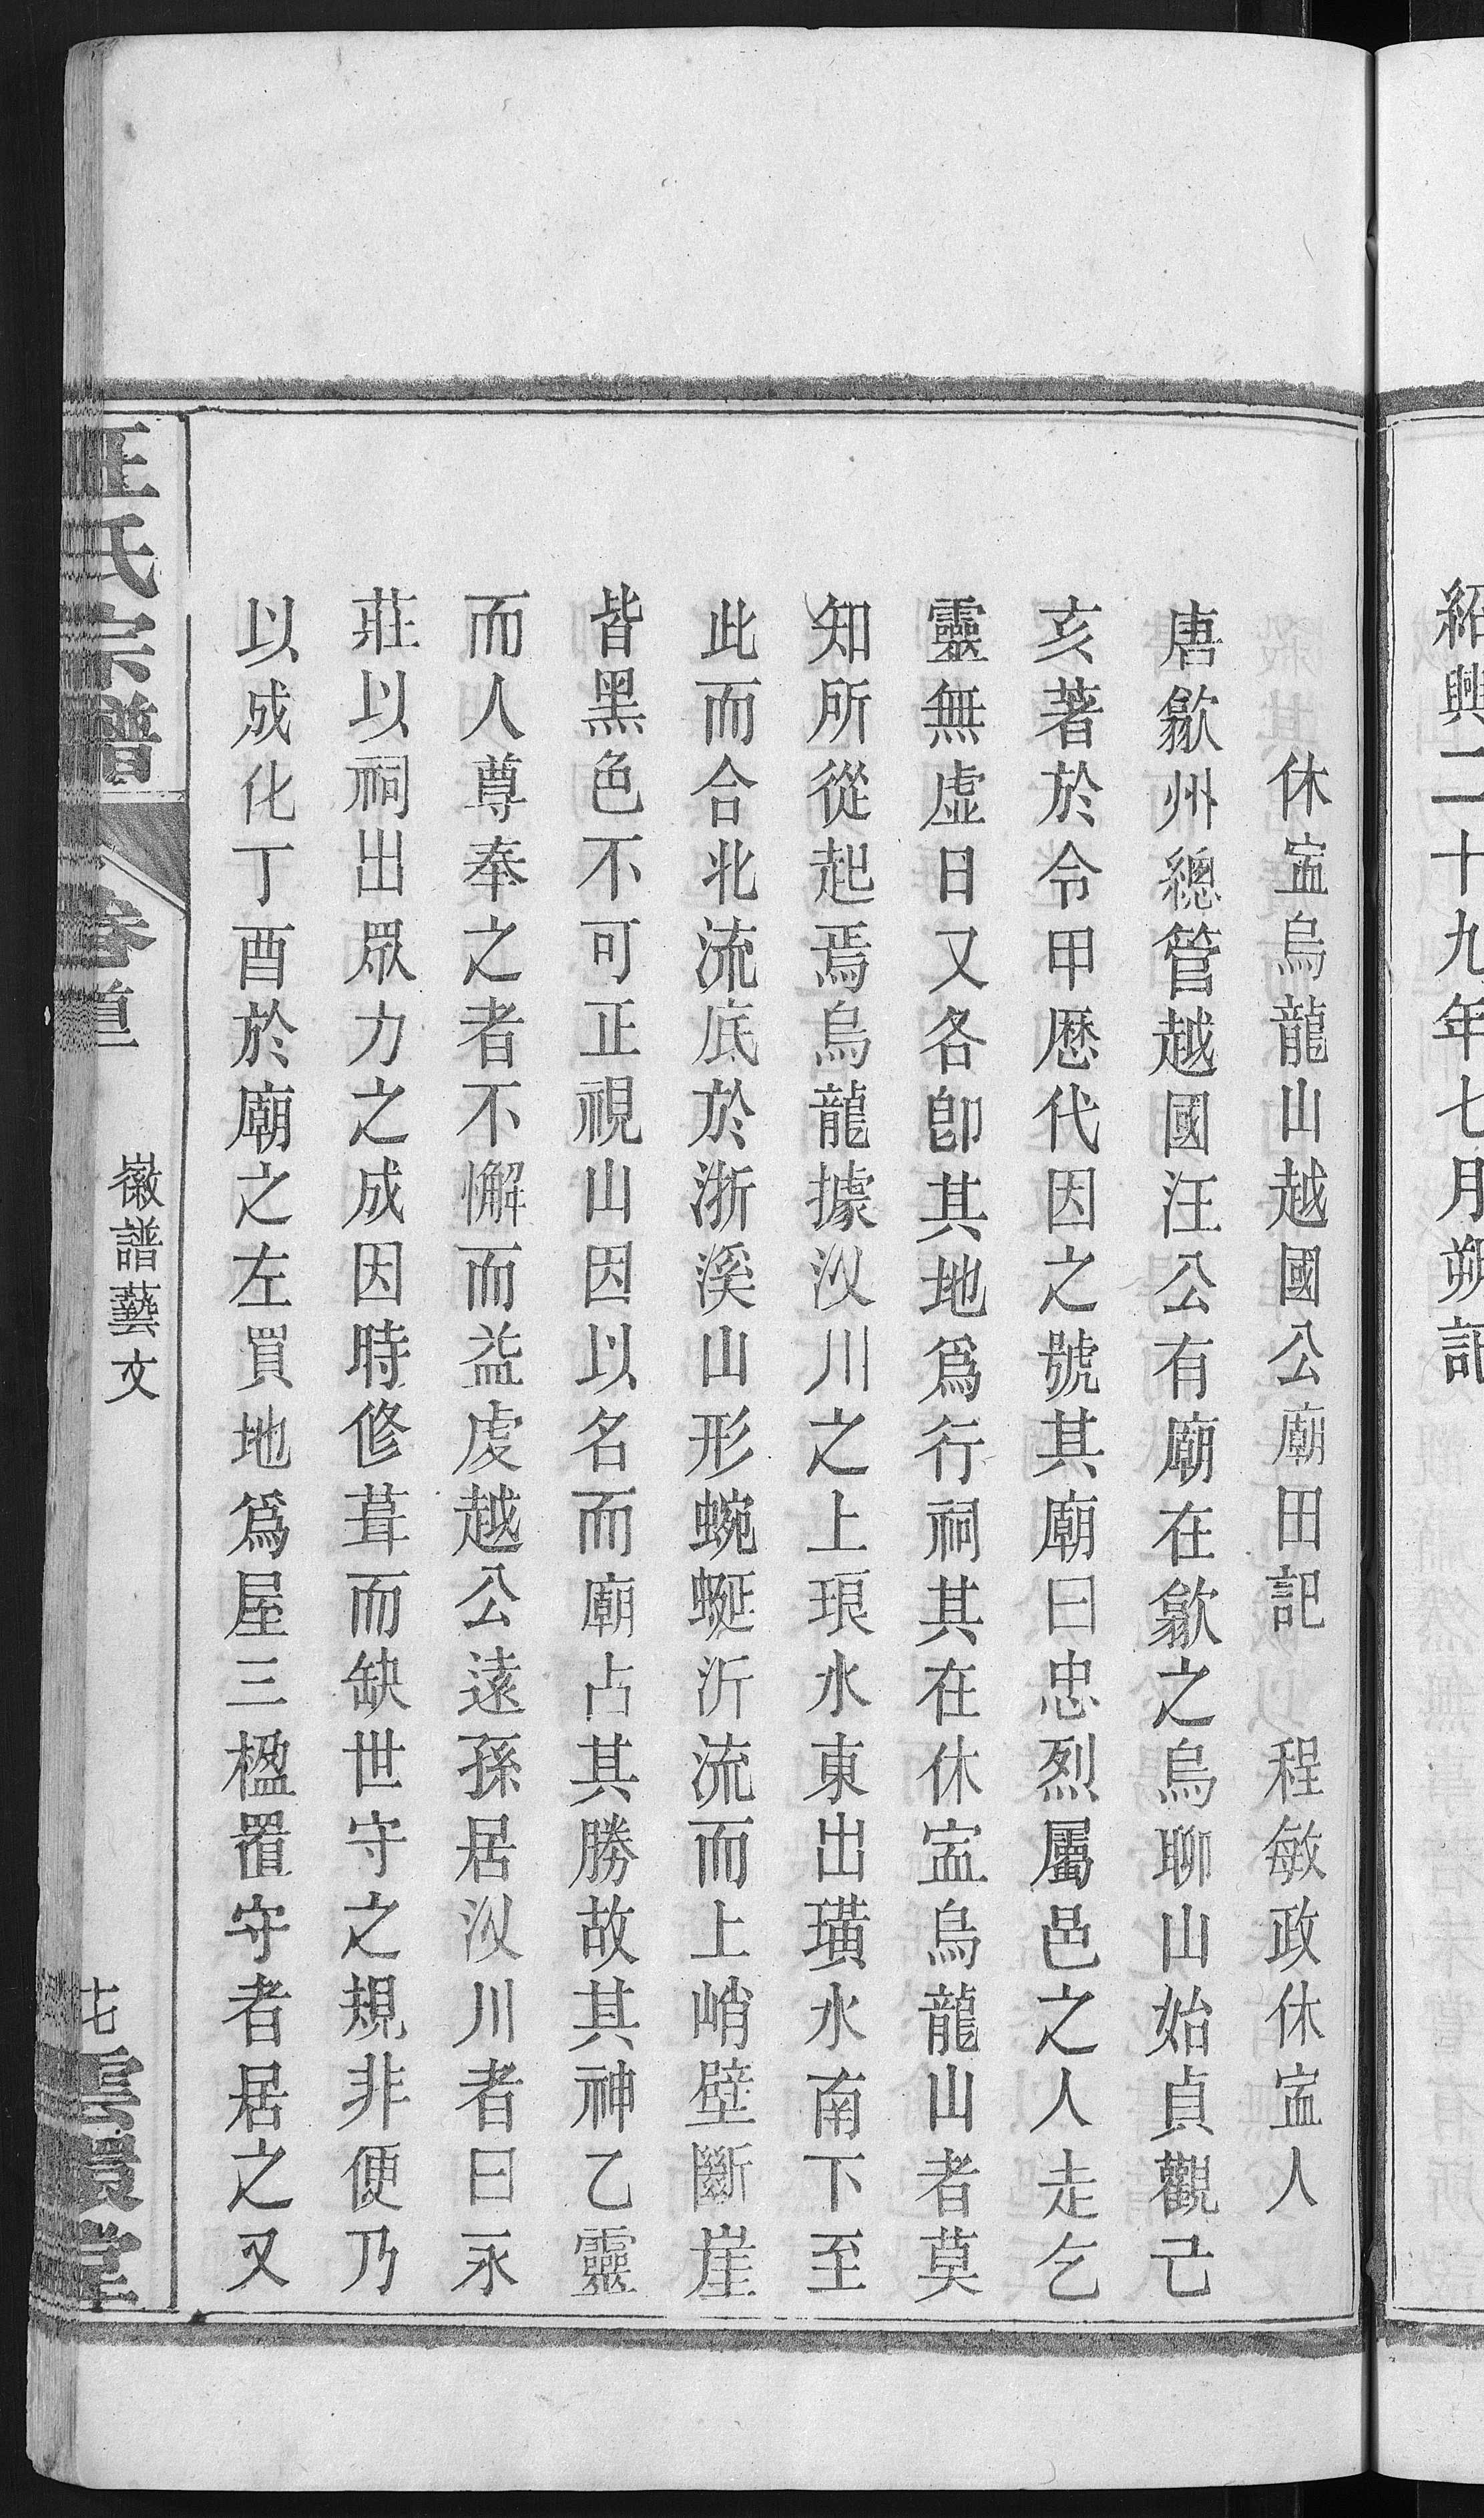 紹興二十九年七月朔記
休寍烏龍山越國公廟田記　程敏政休寍人
唐歙州總管越國汪公有廟在歙之烏聊山始貞觀己
亥著於令甲歷代因之號其廟曰忠烈屬邑之人走乞
靈無虛日又各卽其地爲行祠其在休寍烏龍山者莫
知所從起焉烏龍據汊川之上琅水東出璜水南下至
此而合北流底於浙溪山形蜿蜒沂流而上峭壁斷崖
皆黑色不可正視山因以名而廟占其勝故其神乙靈
而人尊奉之者不懈而益虔越公遠孫居汊川者曰永
莊以祠出眾力之成因時修葺而缺世守之規非便乃
以成化丁酉於廟之左買地爲屋三楹置守者居之又
汪氏宗譜
卷首
徽譜藝文
七
堂